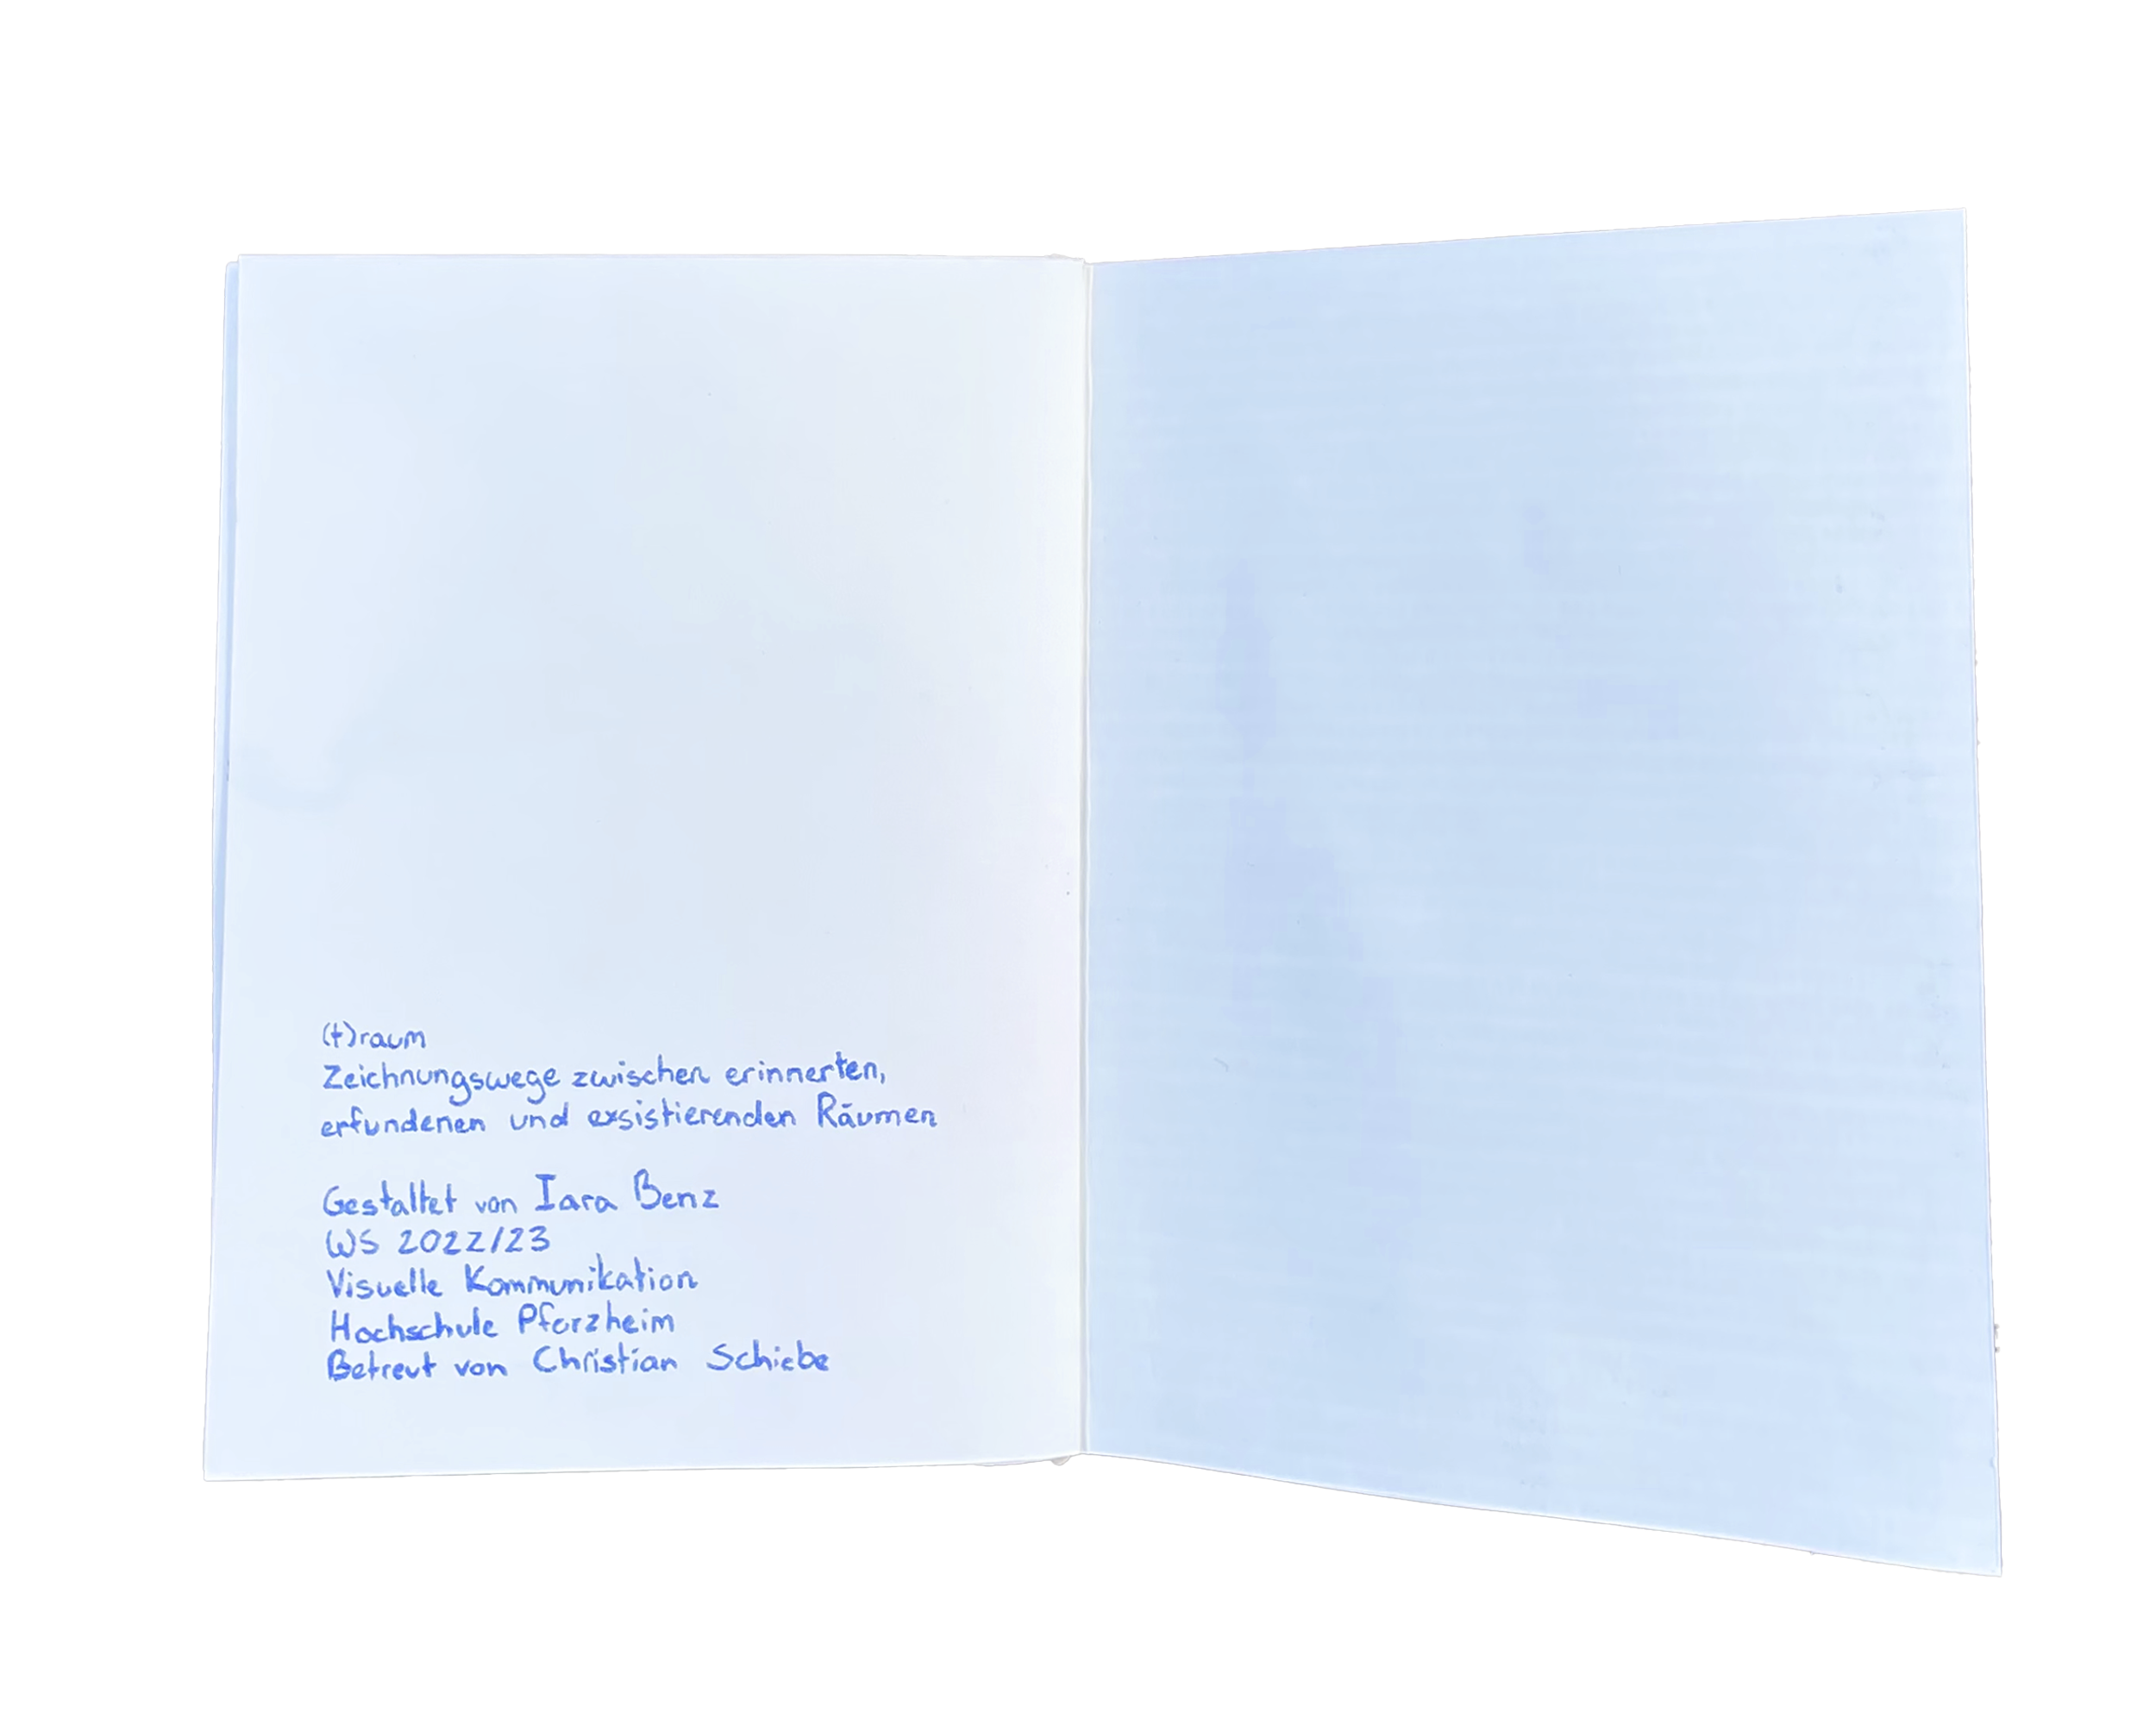 (t)raum
Zeichnungswege zwischen erinnerten,
erfundenen und exsistierenden Räumen
Gestaltet von Iara Benz
WS 2022/23
Visuelle Kommunikation
Hochschule Pforzheim
Betreut von Christian Schiebe